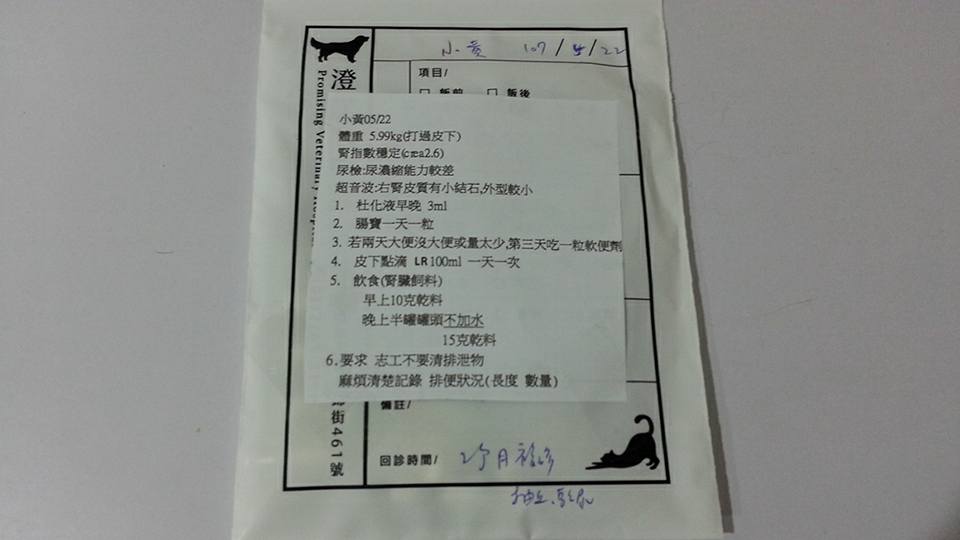 小黃 107/5/22
澄
Promising Veterinary Hospital
項目/
□ 飯前 □ 飯後
小黃05/22
體重 5.99kg(打過皮下)
腎指數穩定(crea2.6)
尿檢:尿濃縮能力較差
超音波:右腎皮質有小結石,外型較小
1. 杜化液早晚 3ml
2. 腸寶一天一粒
3. 若兩天大便沒大便或量太少,第三天吃一粒軟便劑
4. 皮下點滴 LR100ml 一天一次
5. 飲食(腎臟飼料)
早上10克乾料
晚上半罐罐頭不加水
15克乾料
6.要求 志工不要清排泄物
麻煩清楚記錄 排便狀況(長度 數量)
街461號
備註/
回診時間/ 2個月複診
抽血.驗尿